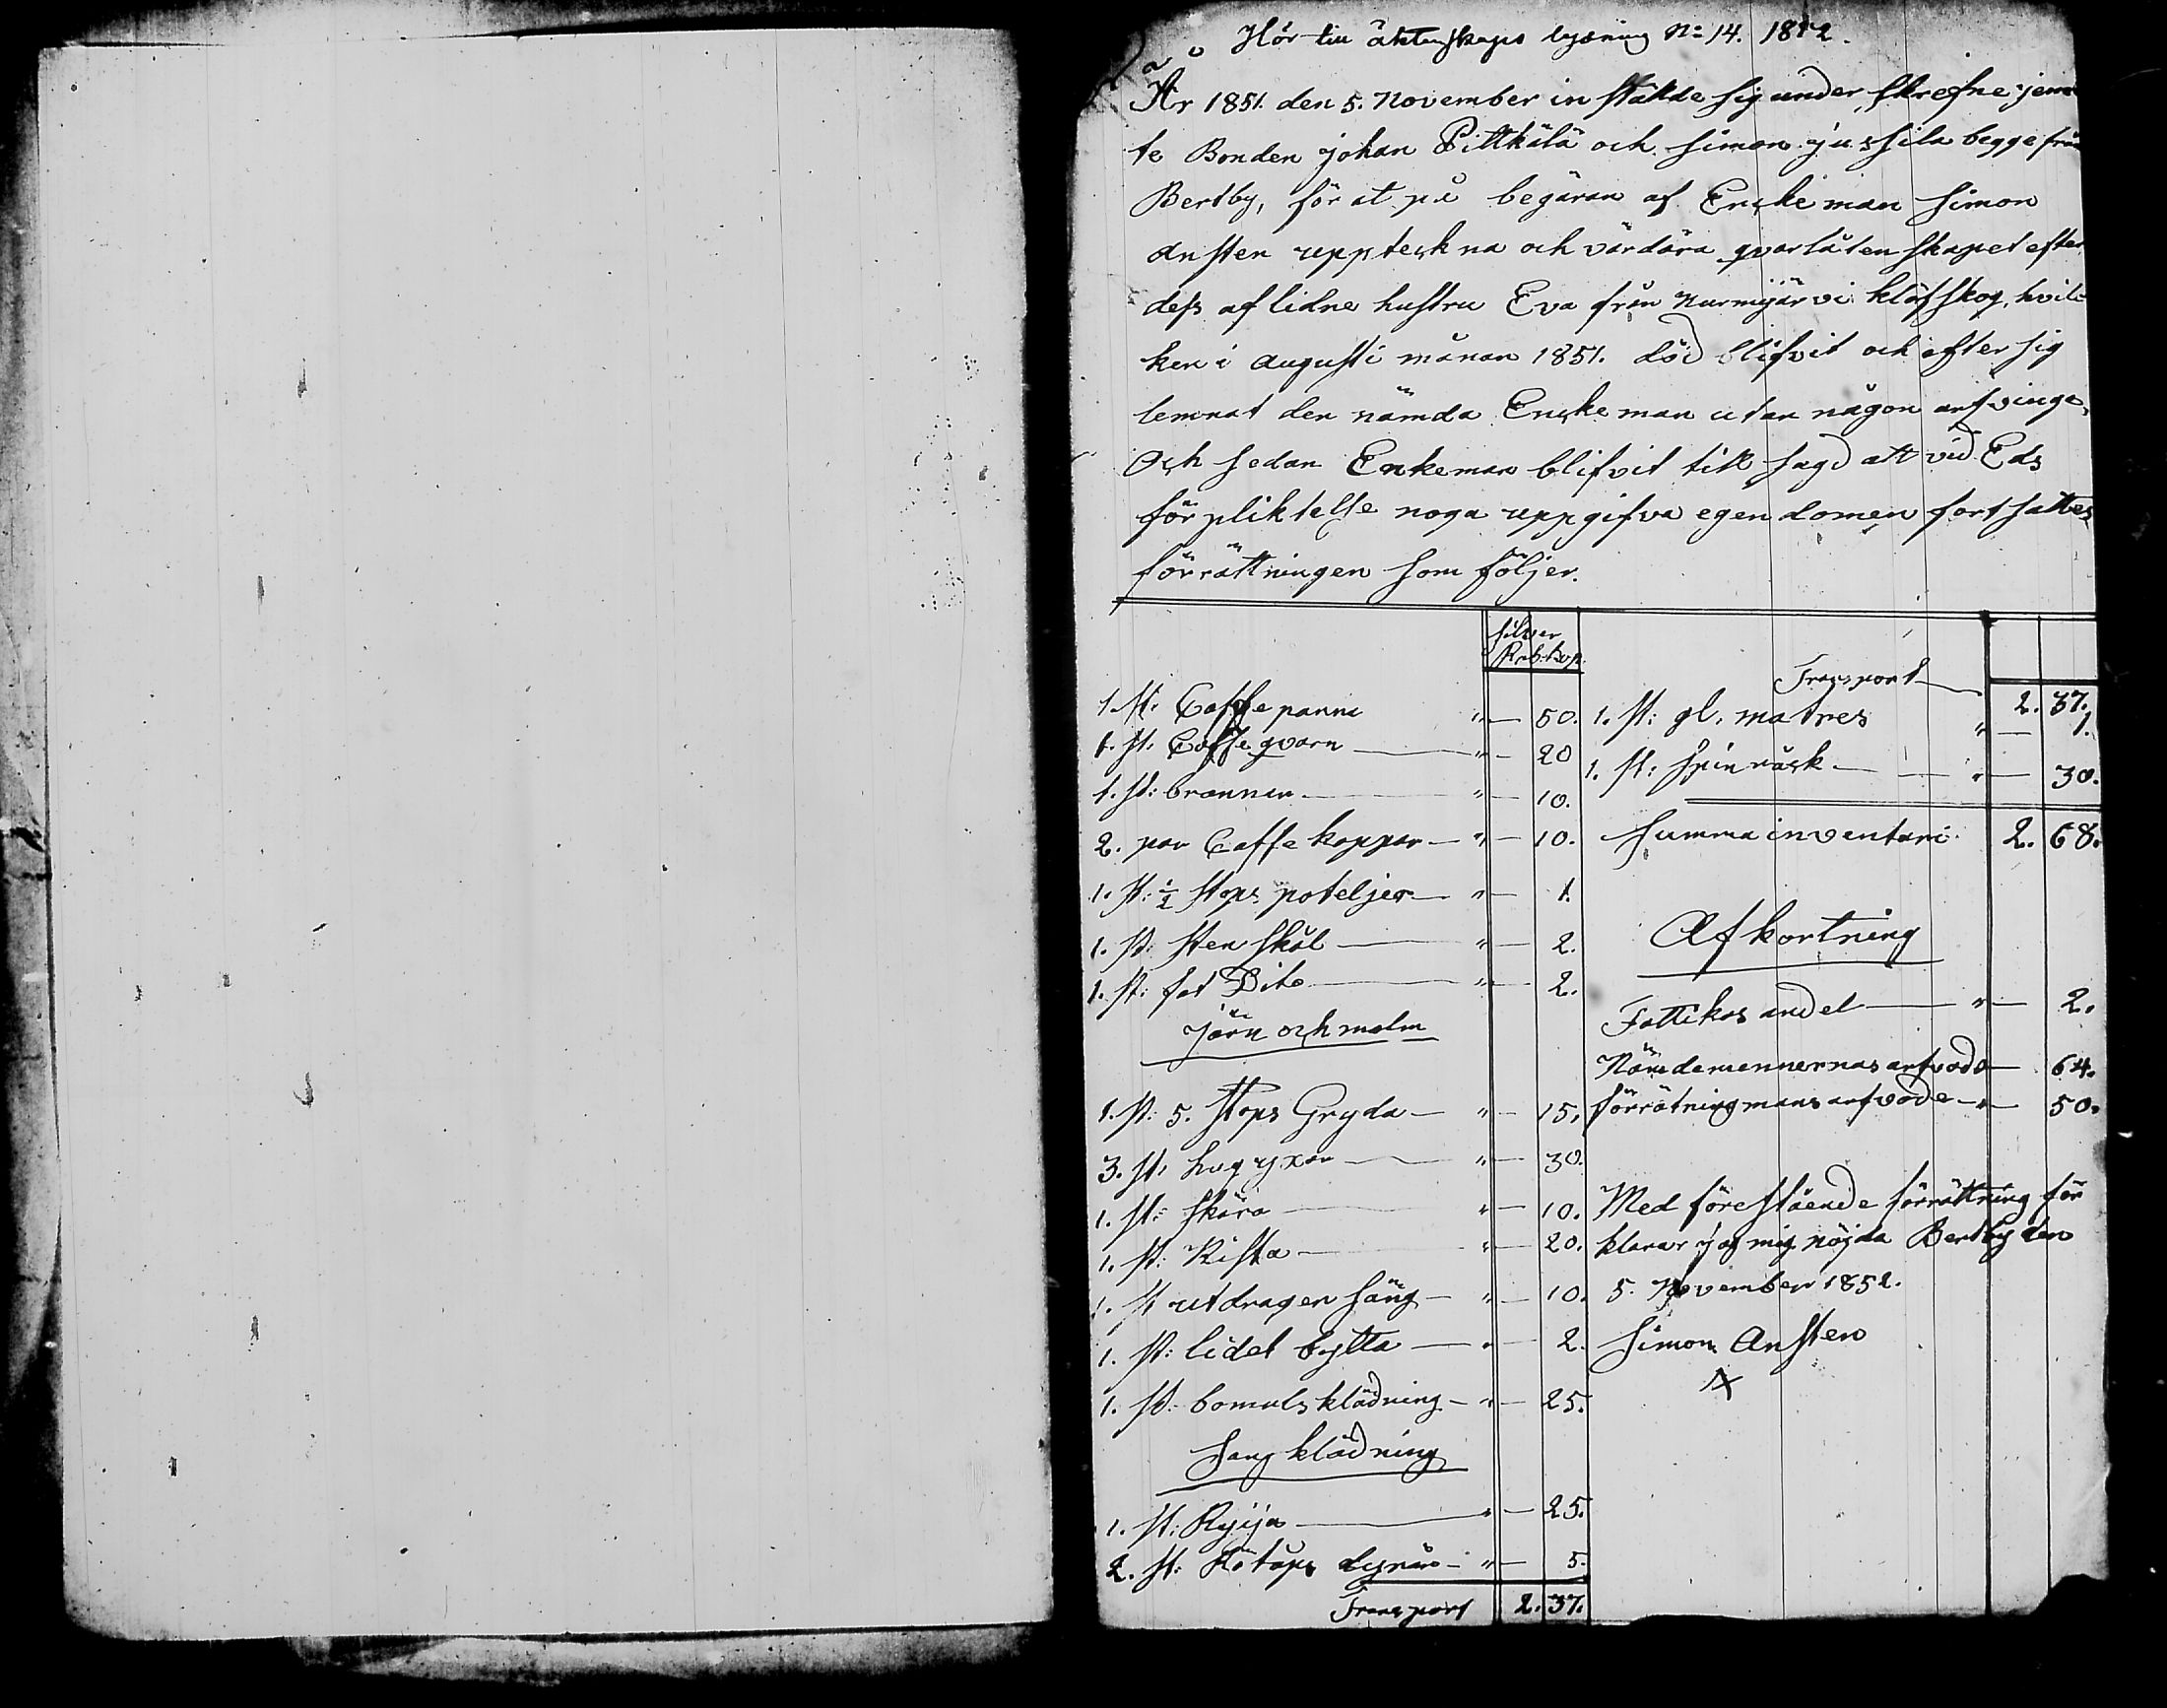 Hör till äktenskaps lysning No 14. 1852.
År 1851. den 5. November in stälde sig under skrefne jem
te Bonden johan Pittkälä och Simon jussila begge från
Bertby, för at på begäran af Enckeman Simon
Ansten uppteckna och värdära qvarlåtenskapet efter
dess aflidne hustru Eva från Nurmijärvi klöfskog, hvil-
ken i Augusti månan 1851. död blifvit och efter sig
lemnat den nämda Enckeman utan någon arfvinge,
Och sedan Enkeman blifvit till sagd att vid Eds
förpliktelse noga uppgifva egendomen fortsattes
förrättningen som följer.
Silver
Rub. kop.
1. st: Caffepanna " 50.
1. st. Caffeqvarn " 20
1. st: brännen " 10.
2. par Caffe koppar " 10.
1. st: ½ stops poteljer " 1.
1. st: sten skål " 2.
1. st: fat Dito " 2.
järn och malm
1. st: 5. stops Gryda " 15.
3. st: hug yxor " 30.
1. st: skära " 10.
1. st: Rista " 20.
1. st utdragen säng " 10.
1. st: lidet bytta " 2.
1. st. bomuls klädning " 25.
Sang klädning
1. st: Ryija " 25.
2. st: dynår " 5.
Transport 2. 37.
Transport 2. 37.
1. st: gl. matres " 1.
1. st: spinråck " 30.
Summa inventari 2. 68.
Afkortning
Fattikas andel " 2.
Nämdemennernas arfvode 64.
förrätningmans arfvode " 50.
Med föreståénde förrättning för
klarar jag mig nöjda Bertby den
5. November 1852.
Simon Ansten
X